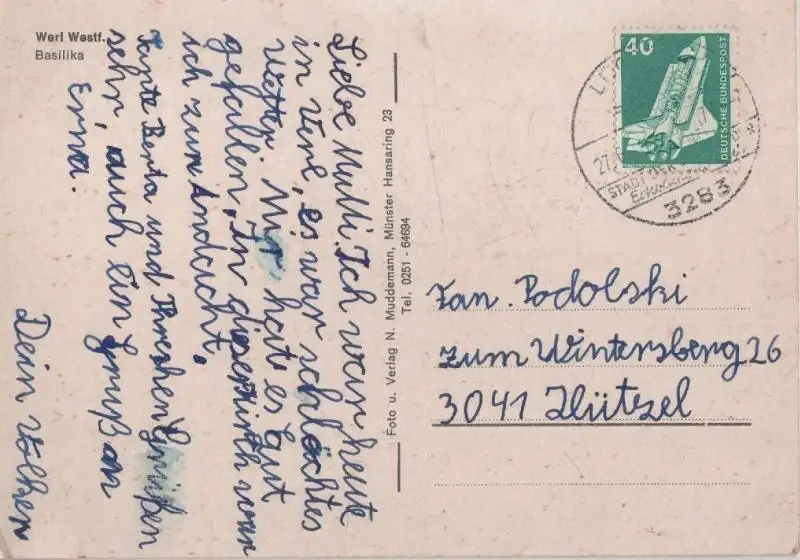 Werl Westf.
Basilika
Liebe Mutti. Ich war heute
in Verl, es war schlächtes
Vätter. Mir hat es Gut
gefallen. In dieser Kirch war
ich zur Andacht.
Tante Berta und Threschen Grüßen
sehr, auch ein Gruß an
Erna.
Dein Volker
Foto u. Verlag N. Muddemann, Münster Hansaring 23
Tel. 0251 - 64694
40
DEUTSCHE BUNDESPOST
3283
Fan. Podolski
zum Wintersberg 26
3041 Hützel